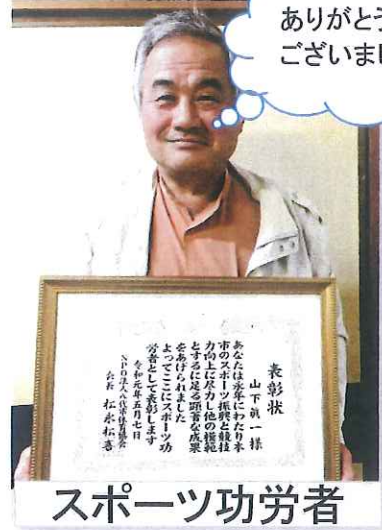 ありがとう
ございまし
表彰状
山下眞一様
あなたは永年にわたり本
市のスポーツ振興と競技
力向上に尽力し他の模範
とするに足る顕著な成果
をあげられました
よってここにスポーツ功
労者として表彰します
令和元年五月七日
NPO法人八代市体育協会
会長 松永松喜
スポーツ功労者